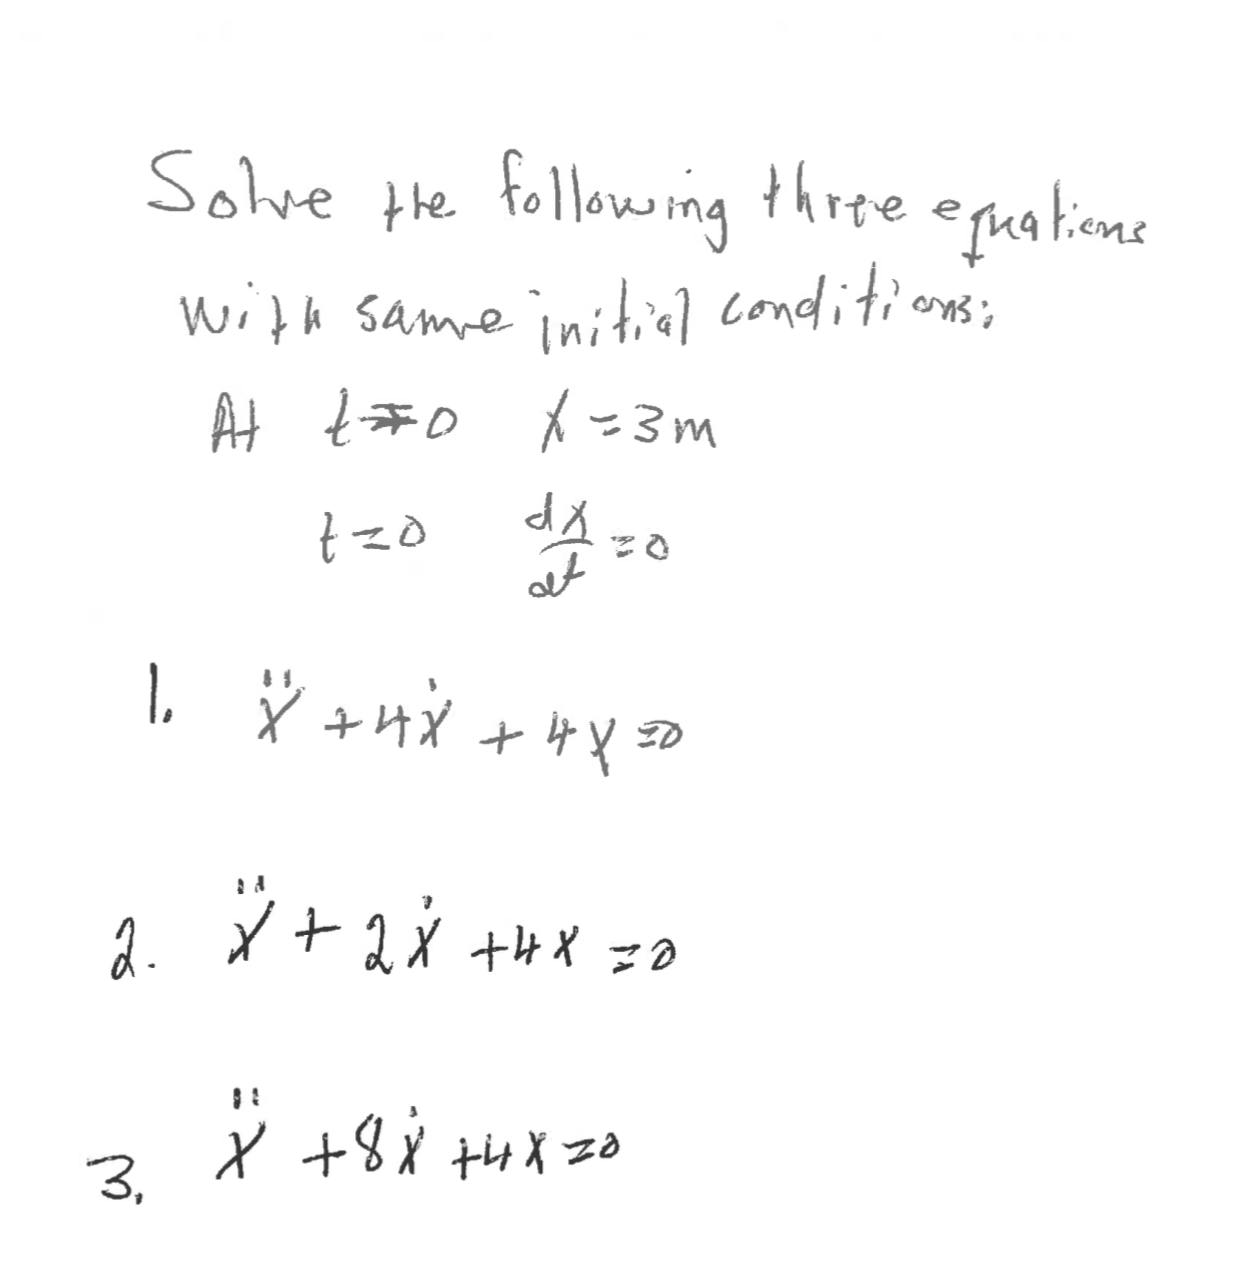 Solve the following three equations
with same initial conditions:
At t=0 x=3m
t=0 dx/dt=0
1. ẍ+4ẋ+4x=0
2. ẍ+2ẋ+4x=0
3. ẍ+8ẋ+4x=0